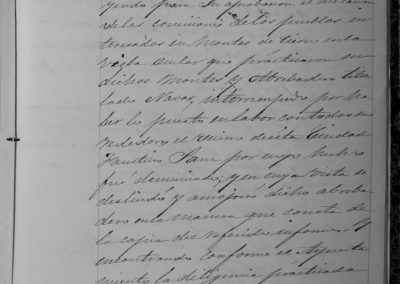 yendo para su aprobacion el dictamen
de la comisión de los pueblos en
teresados en Montes se tiene en la
vista en la que practicaron en
dichos Montes y Abrebadero titu
lado Navas, interrumpido por ha
berlo puesto en labor contados
el vecino de esta Ciudad
Faustino Sanz por cuyo hecho
fué denunciado; y en cuya vista se
deslindó y amojonó dicho abreba
dero en la manera que consta de
la copia del referido informe. Y
encontrando conforme el Ayunta
miento la diligencia practicada